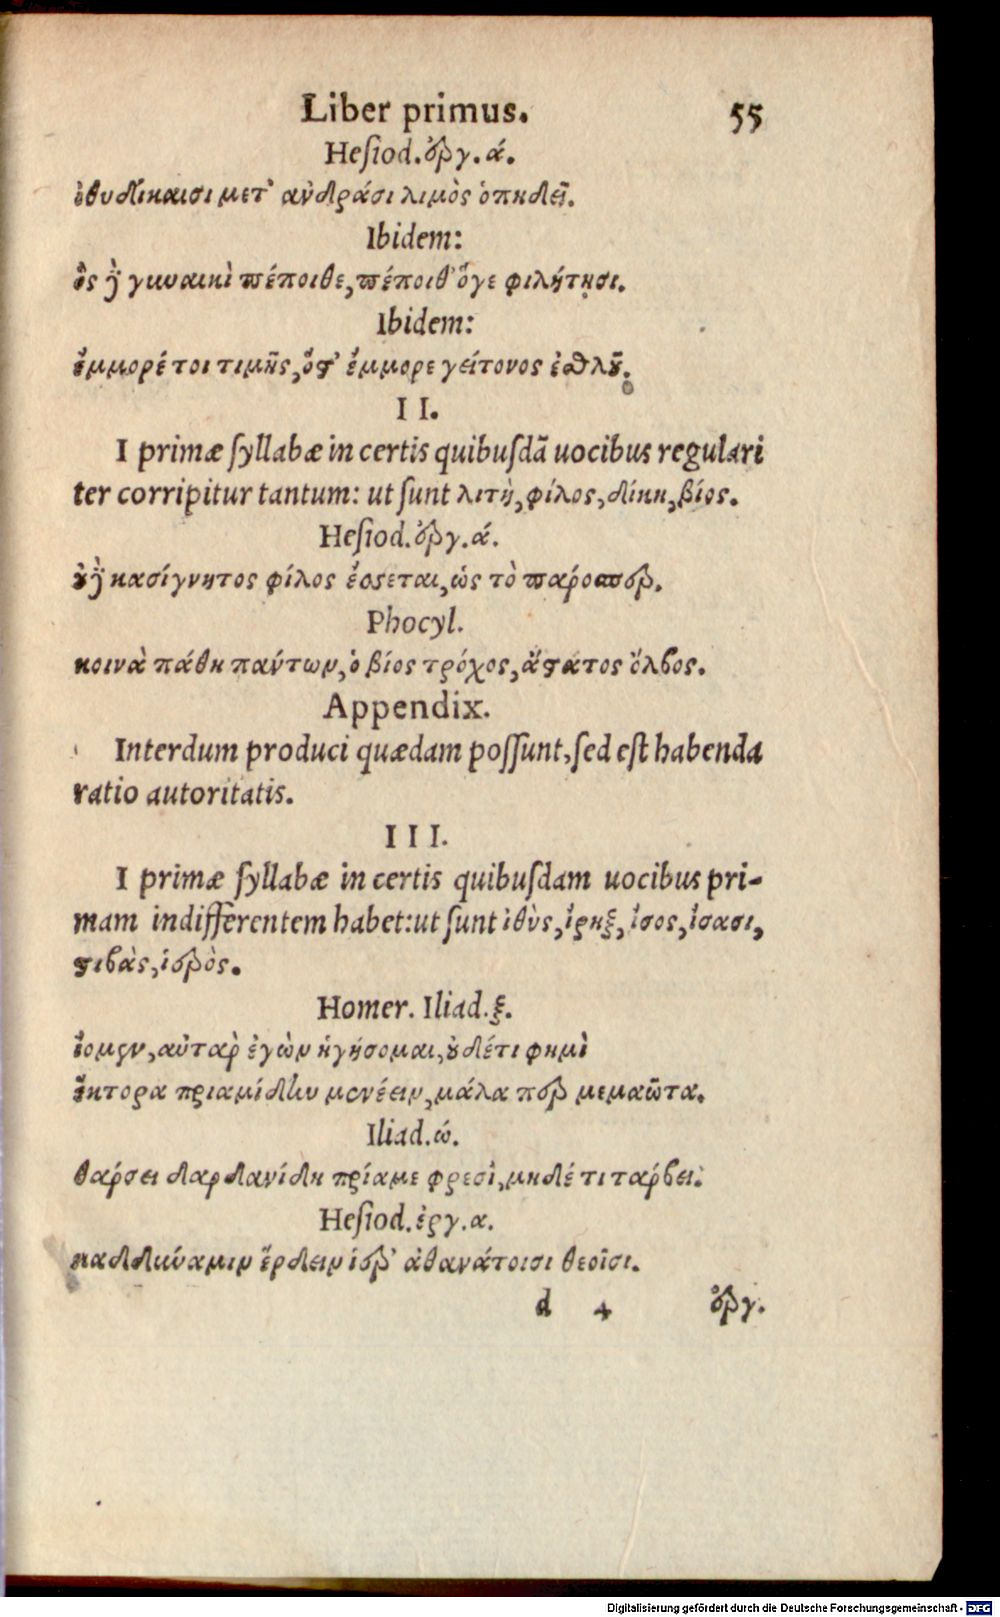 Liber primus. 55
Hesiod. ἔργ. ά.
ἰθυδίκαισι μετ᾽ ἀνδράσι λιμὸς ὀπηδεῖ.
Ibidem:
ὃς δὲ γυναικὶ πέποιθε, πέποιθ᾽ ὅγε φιλήτῃσι.
Ibidem:
ἔμμορέ τοι τιμῆς, ὅστ᾽ ἔμμορε γείτονος ἐσθλοῦ.
II.
I primæ syllabæ in certis quibusdã uocibus regulari
ter corripitur tantum: ut sunt λιτὴ, φίλος, δίκη, βίος.
Hesiod. ἔργ. ά.
οὐδὲ κασίγνητος φίλος ἔσσεται, ὡς τὸ πάροσπερ.
Phocyl.
κοινὰ πάθη πάντων, ὁ βίος τρόχος, ἄστατος ὄλβος.
Appendix.
Interdum produci quædam possunt, sed est habenda
ratio autoritatis.
III.
I primæ syllabæ in certis quibusdam uocibus pri-
mam indifferentem habet: ut sunt ἰθὺς, ἴρηξ, ἴσος, ἴσασι,
στιβὰς, ἱερὸς.
Homer. Iliad. ξ.
ἴομεν, αὐτὰρ ἐγὼν ἡγήσομαι, οὐδέτι φημὶ
ἕκτορα πριαμίδην μενέειν, μάλα περ μεμαῶτα.
Iliad. ώ.
θάρσει δαρδανίδη πρίαμε φρεσὶ, μηδέ τι τάρβει.
Hesiod. ἐργ. α.
καδδύναμιν ἔρδειν ἱέρ᾽ ἀθανάτοισι θεοῖσι.
d 4 ἔργ.
Digitalisierung gefördert durch die Deutsche Forschungsgemeinschaft - DFG